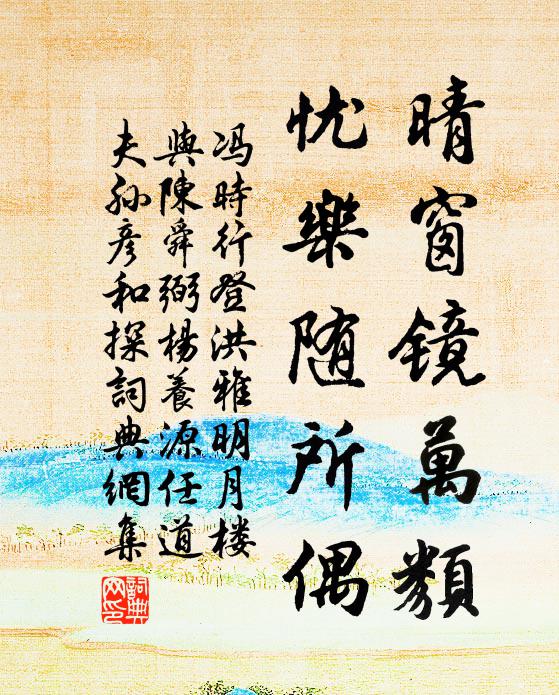 晴窗镜萬類
忧樂随所偶
冯時行登洪雅明月楼
與陳舜弼楊養源任道
夫孙彦和探詞典網集
詞典
网印